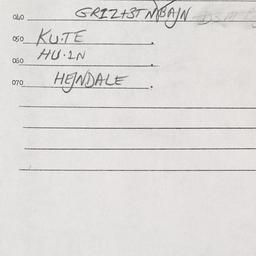 040 GRIZ+3TN/BAJN
050 KU·TE .
060 HU·1N .
070 HEJNDALE .